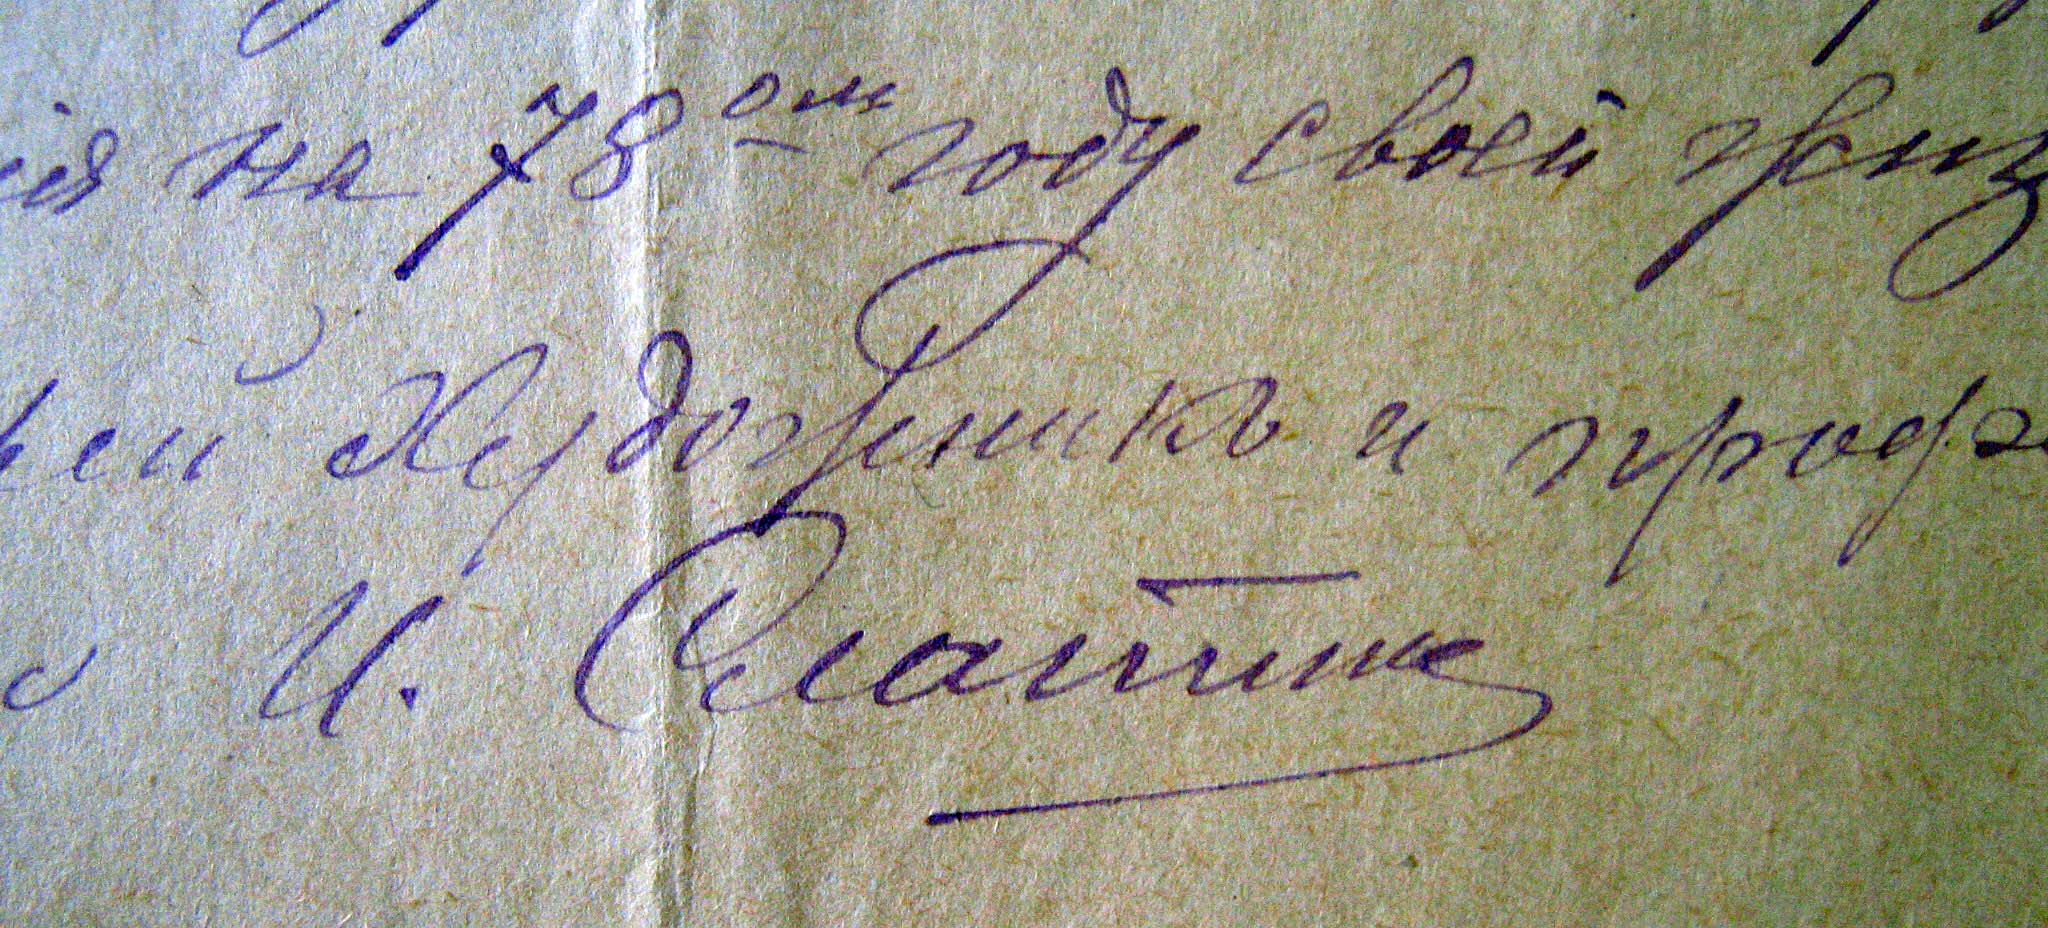 ія на 78ом году своей жиз
ей Художникъ и проф
И. Слатин